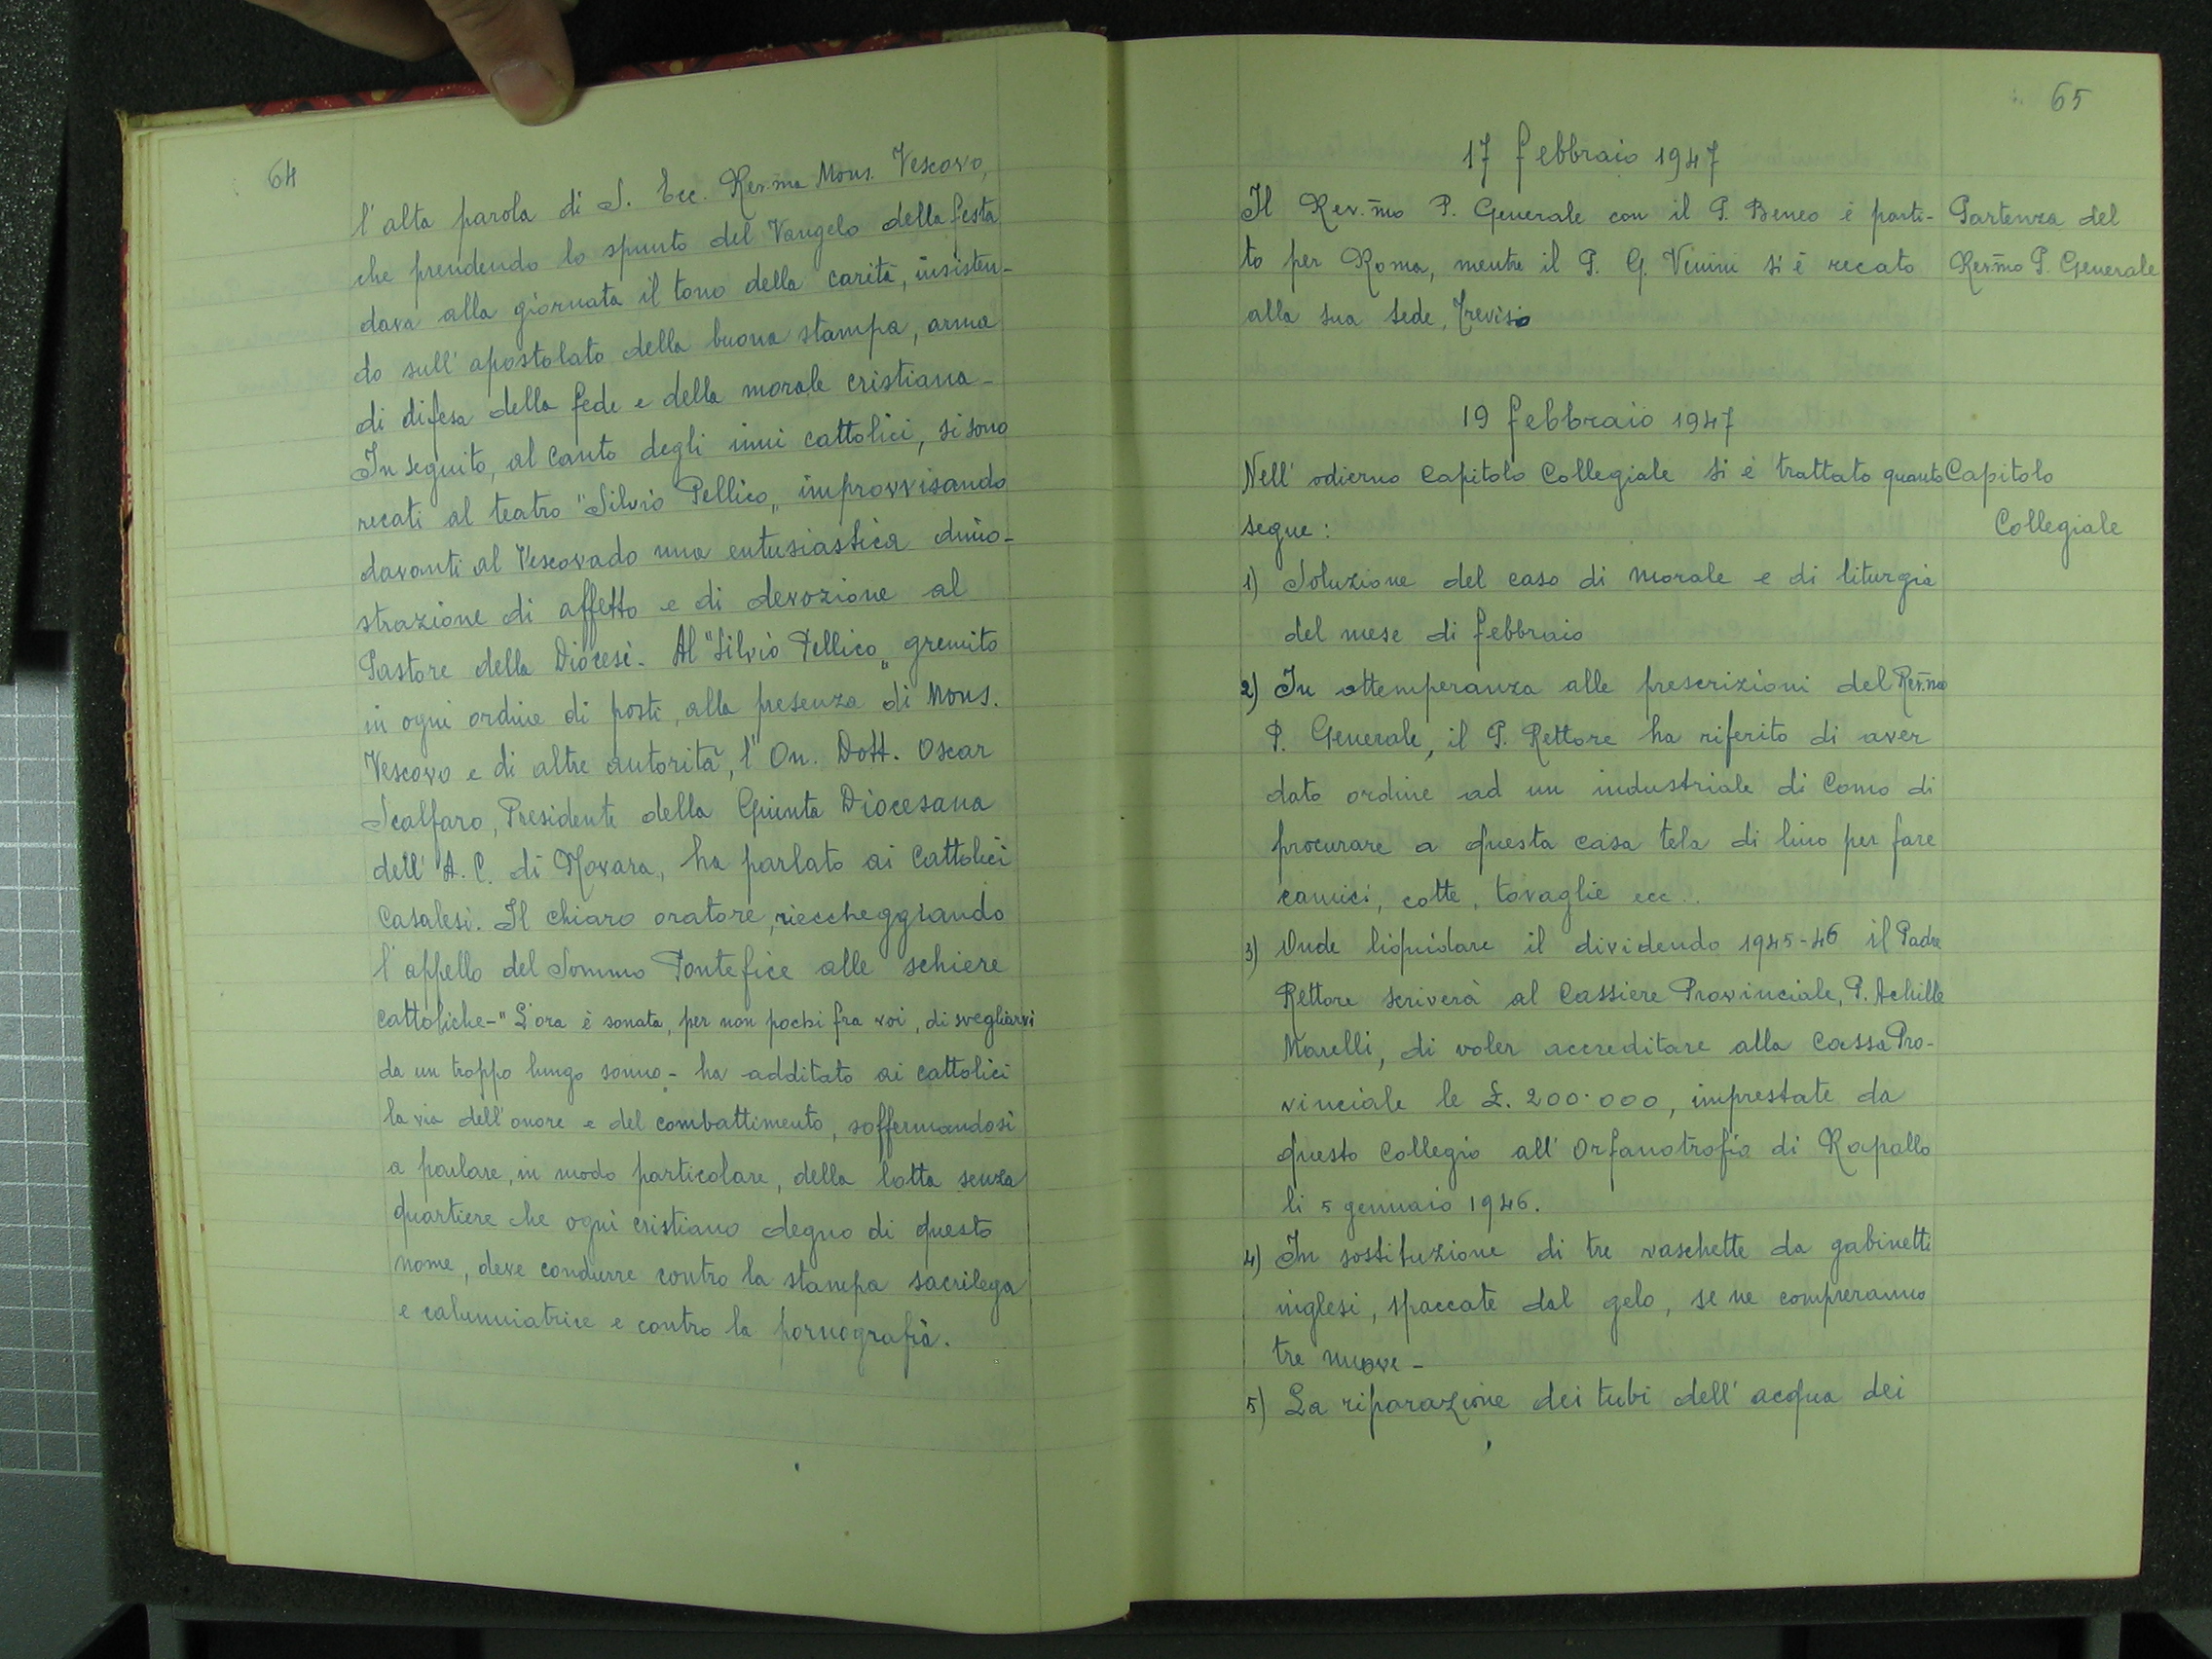 64
l'alta parola di S. Ecc. Rev.ma Mons. Vescovo,
che prendendo lo spunto del Vangelo della festa
dava alla giornata il tono della carità, insisten-
do sull'apostolato della buona stampa, arma
di difesa della fede e della morale cristiana-
In seguito, al canto degli inni cattolici, si sono
recati al teatro "Silvio Pellico„ improvvisando
davanti al Vescovado una entusiastica dimo-
strazione di affetto e di devozione al
Pastore della Diocesi. Al "Silvio Pellico„ gremito
in ogni ordine di posti, alla presenza di Mons.
Vescovo e di altre autorità, l'On. Dott. Oscar
Scalfaro, Presidente della Giunta Diocesana
dell'A.C. di Novara, ha parlato ai Cattolici
Casalesi. Il chiaro oratore, riecheggiando
l'appello del Sommo Pontefice alle schiere
cattoliche-"L'ora è sonata, per non pochi fra voi, di svegliarvi
da un troppo lungo sonno- ha additato ai cattolici
la via dell'onore e del combattimento, soffermandosi
a parlare, in modo particolare, della lotta senza
quartiere che ogni cristiano degno di questo
nome, deve condurre contro la stampa sacrilega
e calunniatrice e contro la pornografia.
65
17 febbraio 1947
Il Rev.mo P. Generale con il P. Beneo è parti-
to per Roma, mentre il P. G. Vinini si è recato
alla sua sede, Treviso
Partenza del
Rev.mo P. Generale
19 febbraio 1947
Nell'odierno Capitolo Collegiale si è trattato quanto
segue:
Capitolo
Collegiale
1) Soluzione del caso di morale e di liturgia
del mese di febbraio
2) In ottemperanza alle prescrizioni del Rev.mo
P. Generale, il P. Rettore ha riferito di aver
dato ordine ad un industriale di Como di
procurare a questa casa tela di lino per fare
camici, cotte, tovaglie ecc..
3) Onde liquidare il dividendo 1945-46 il Padre
Rettore scriverà al Cassiere Provinciale, P. Achille
Marelli, di voler accreditare alla Cassa Pro-
vinciale le £. 200.000, imprestate da
questo Collegio all'Orfanotrofio di Rapallo
li 5 gennaio 1946.
4) In sostituzione di tre vaschette da gabinetti
inglesi, spaccate dal gelo, se ne compreranno
tre nuove-
5) La riparazione dei tubi dell'acqua dei